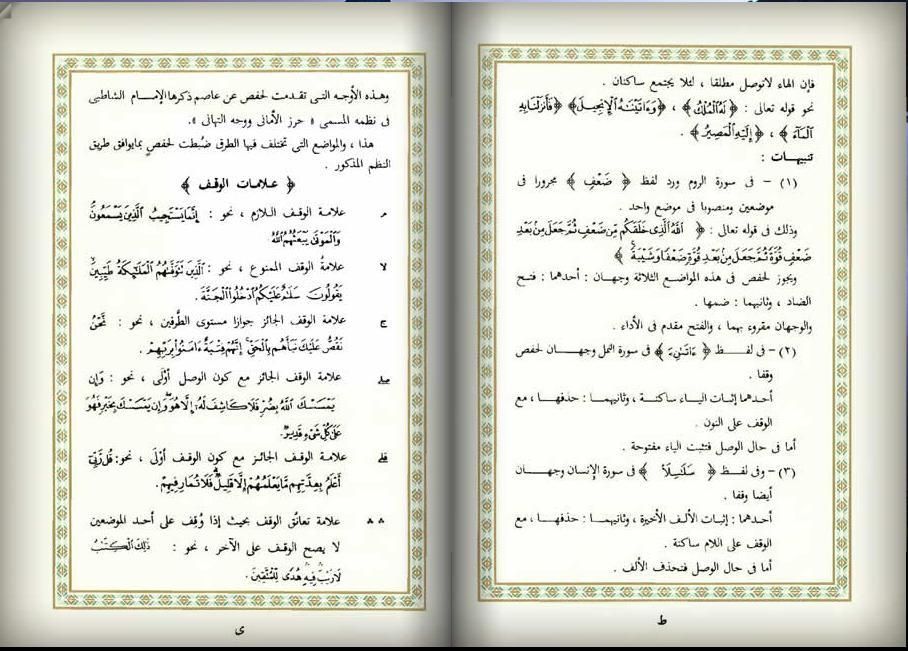 فإن الهاء لاتوصل مطلقا ، لئلا يجتمع ساكنان .
نحو قوله تعالى : ﴿ لَهُ الْمُلْكُ ﴾ ، ﴿ وَءَاتَيْنَهُ الْإِنجِيلَ ﴾ ﴿ فَأَنزَلْنَا بِهِ
الْمَاءَ ﴾ ، ﴿ إِلَيْهِ الْمَصِيرُ ﴾ .
تنبيهات :
(١) - فى سورة الروم ورد لفظ ﴿ ضَعْفٍ ﴾ مجرورا فى
موضعين ومنصوبا فى موضع واحد .
وذلك فى قوله تعالى : ﴿ اللَّهُ الَّذِى خَلَقَكُم مِّن ضَعْفٍ ثُمَّ جَعَلَ مِنۢ بَعْدِ
ضَعْفٍ قُوَّةً ثُمَّ جَعَلَ مِنۢ بَعْدِ قُوَّةٍ ضَعْفًا وَشَيْبَةً ﴾
ويجوز لحفص فى هذه المواضع الثلاثة وجهان : أحدهما : فتح
الضاد ، وثانيهما : ضمها .
والوجهان مقروء بهما ، والفتح مقدم فى الأداء .
(٢) - فى لفظ ﴿ ءَاتَىٰنِۦَ ﴾ فى سورة النمل وجهان لحفص
وقفا .
أحدهما إثبات الياء ساكنة ، وثانيهما : حذفها ، مع
الوقف على النون .
أما فى حال الوصل فتثبت الياء مفتوحة .
(٣) - وفى لفظ ﴿ سَلَٰسِلَا۟ ﴾ فى سورة الإنسان وجهان
أيضا وقفا .
أحدهما : إثبات الألف الأخيرة ، وثانيهما : حذفها ، مع
الوقف على اللام ساكنة .
أما فى حال الوصل فتحذف الألف .
ط
وهذه الأوجه التى تقدمت لحفص عن عاصم ذكرها الإمام الشاطبى
فى نظمه المسمى « حرز الأمانى ووجه التهانى » .
هذا ، والمواضع التى تختلف فيها الطرق ضُبطت لحفصٍ بمايوافق طريق
النظم المذكور .
﴿ علامات الوقف ﴾
مـ علامة الوقف اللازم ، نحو : إِنَّمَا يَسْتَجِيبُ الَّذِينَ يَسْمَعُونَ
وَالْمَوْتَىٰ يَبْعَثُهُمُ اللَّهُ
لا علامةُ الوقف الممنوع ، نحو : الَّذِينَ تَتَوَفَّىٰهُمُ الْمَلَٰٓئِكَةُ طَيِّبِينَ
يَقُولُونَ سَلَٰمٌ عَلَيْكُمُ ادْخُلُوا الْجَنَّةَ .
ج علامة الوقف الجائز جوازا مستوى الطَّرفين ، نحو : نَّحْنُ
نَقُصُّ عَلَيْكَ نَبَأَهُم بِالْحَقِّ إِنَّهُمْ فِتْيَةٌ ءَامَنُوا بِرَبِّهِمْ .
صلى علامة الوقف الجائز مع كون الوصل أوْلَى ، نحو : وَإِن
يَمْسَسْكَ اللَّهُ بِضُرٍّ فَلَا كَاشِفَ لَهُۥٓ إِلَّا هُوَ وَإِن يَمْسَسْكَ بِخَيْرٍ فَهُوَ
عَلَىٰ كُلِّ شَىْءٍ قَدِيرٌ .
قلى علامة الوقف الجائز مع كون الوقف أوْلَى ، نحو: قُل رَّبِّىٓ
أَعْلَمُ بِعِدَّتِهِم مَّا يَعْلَمُهُمْ إِلَّا قَلِيلٌ فَلَا تُمَارِ فِيهِمْ .
∴ ∴ علامة تعانُق الوقف بحيث إذا وُقِف على أحد الموضعين
لا يصح الوقف على الآخر ، نحو : ذَٰلِكَ الْكِتَٰبُ
لَا رَيْبَ فِيهِ هُدًى لِّلْمُتَّقِينَ .
ى